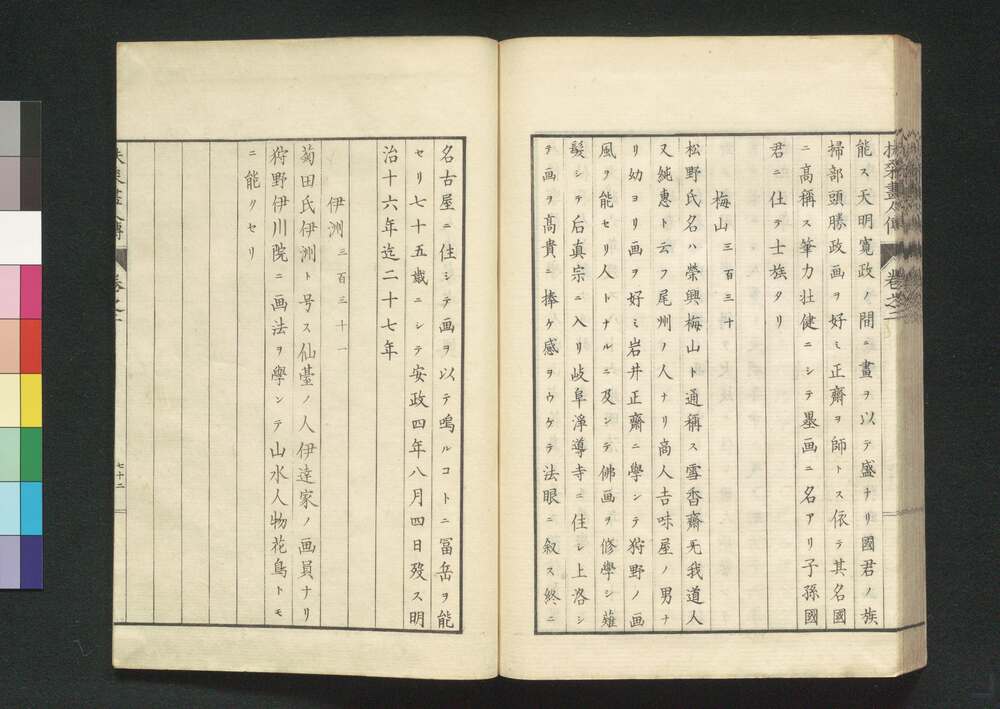 扶桑畫人傳 巻之二
能ス天明寛政ノ間ニ畫ヲ以テ盛ナリ國君ノ族
掃部頭勝政画ヲ好ミ正齋ヲ師トス依テ其名國
ニ髙稱ス筆力壮健ニシテ墨画ニ名アリ子孫國
君ニ仕テ士族タリ
梅山 三百三十
松野氏名ハ榮興梅山ト通稱ス雪香齋无我道人
又純惠ト云フ尾州ノ人ナリ商人吉味屋ノ男ナ
リ幼ヨリ画ヲ好ミ岩井正齋ニ學ンテ狩野ノ画
風ヲ能セリ人トナルニ及ンテ佛画ヲ修學シ薙
髪シテ后真宗ニ入リ岐阜淨導寺ニ住シ上洛シ
テ画ヲ髙貴ニ捧ケ感ヲウケテ法眼ニ叙ス終ニ
名古屋ニ住シテ画ヲ以テ鳴ルコトニ冨岳ヲ能
セリ七十五歳ニシテ安政四年八月四日殁ス明
治十六年迄二十七年
伊洲 三百三十一
菊田氏伊洲ト号ス仙臺ノ人伊達家ノ画員ナリ
狩野伊川院ニ画法ヲ學ンテ山水人物花鳥トモ
ニ能クセリ
七十二